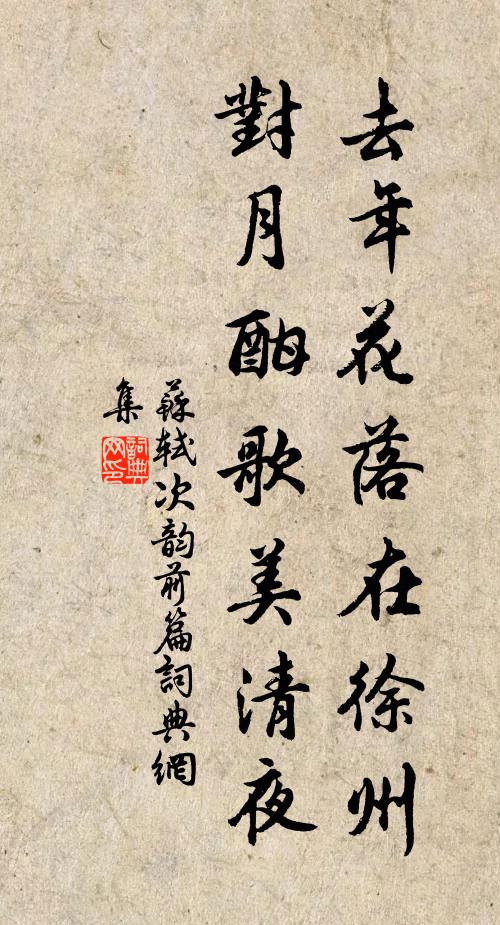 去年花落在徐州
對月酣歌美清夜
蘇軾次韵前篇詞典網
集
詞典
网印